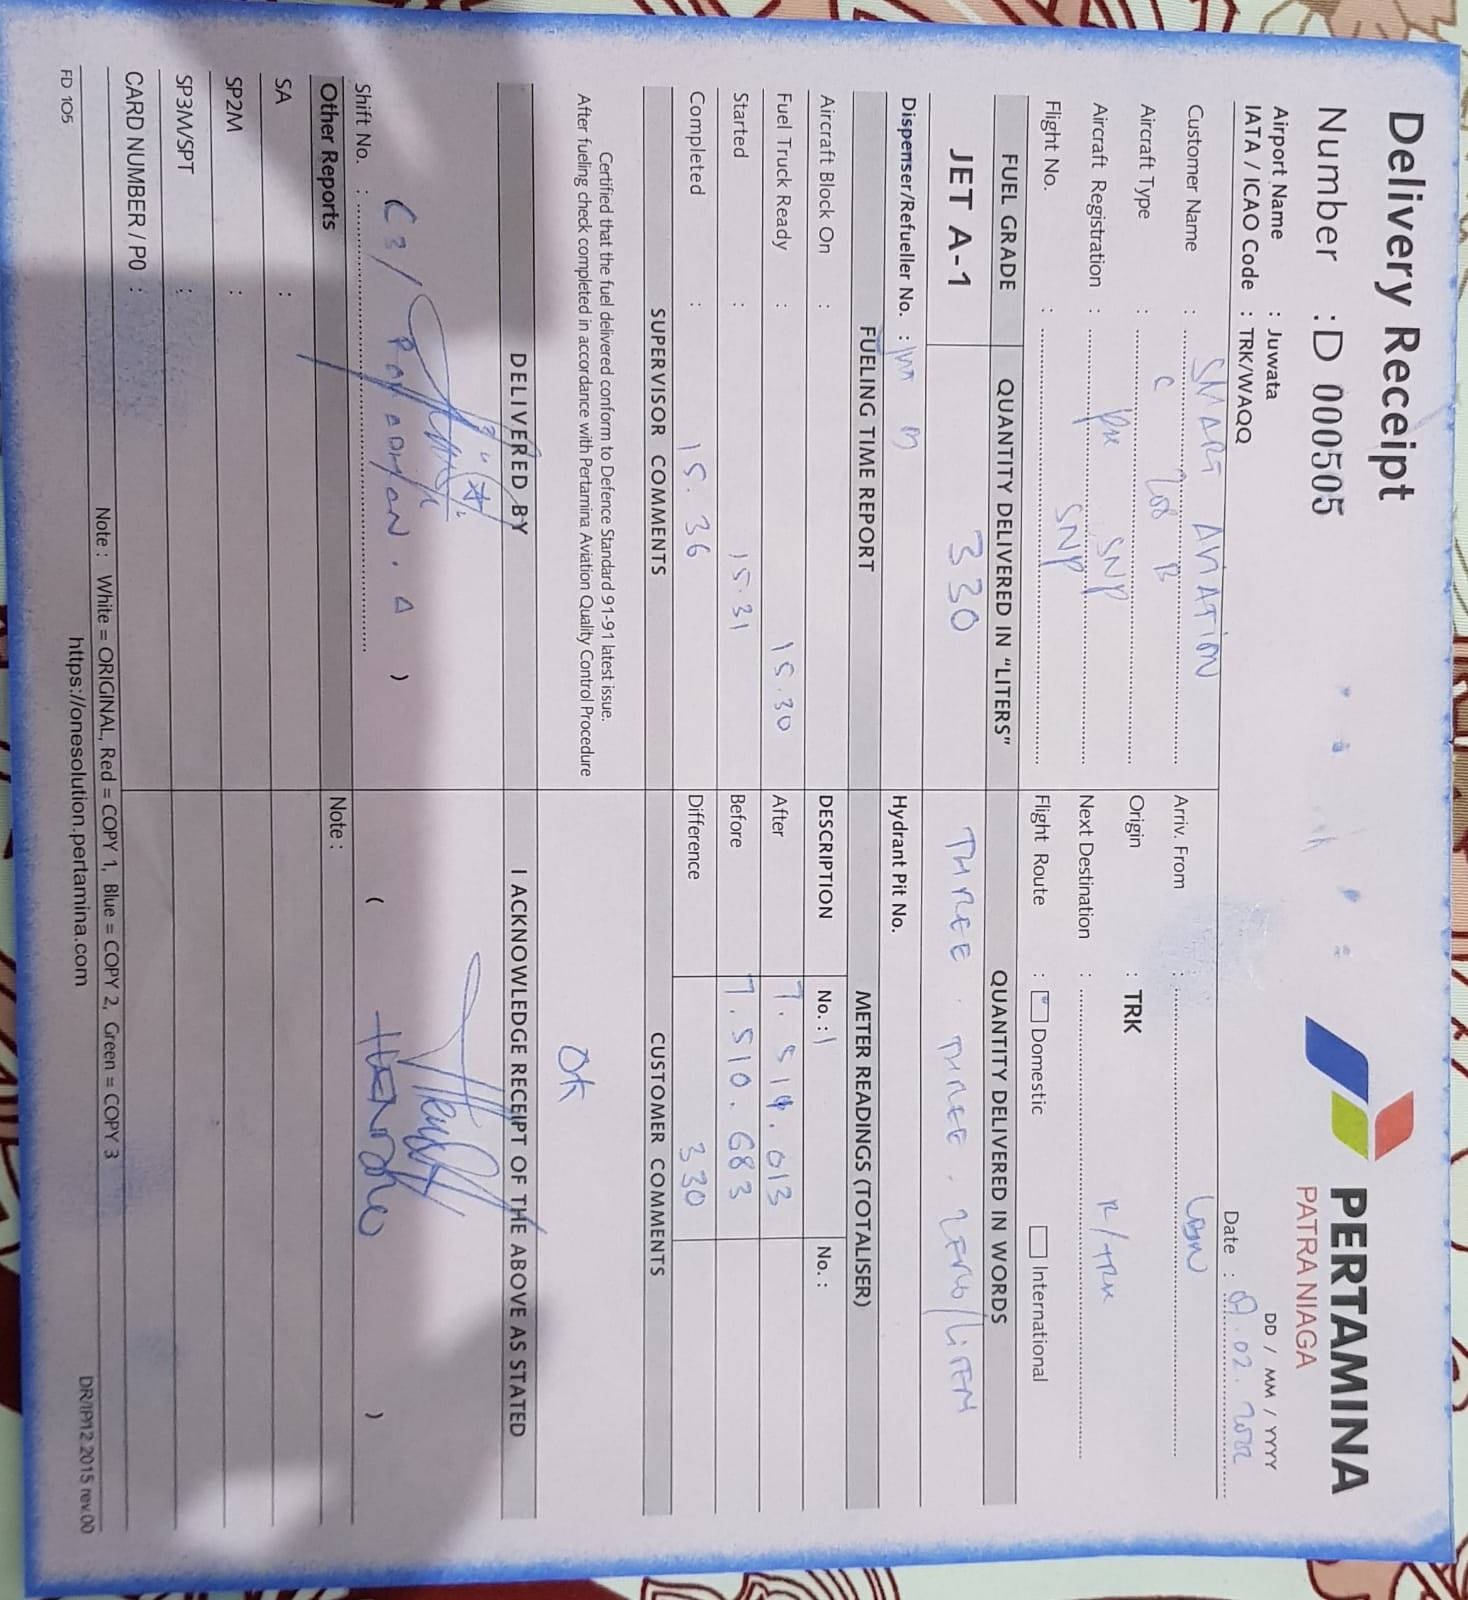 Delivery Receipt
Number : D 000505
PERTAMINA
PATRA NIAGA
Airport Name : Juwata
DD / MM / YYYY
IATA / ICAO Code : TRK/WAQQ
Date : . 02 . 2022
Customer Name : SMART AVIATION
Arriv. From :
Aircraft Type : C 208 B
Origin : TRK
Aircraft Registration : PK SNP
Next Destination :
Flight No. : SNP
Flight Route : Domestic International
FUEL GRADE QUANTITY DELIVERED IN "LITERS" QUANTITY DELIVERED IN WORDS
JET A-1 330 THREE . THREE . ZERO / LITER
Dispenser/Refueller No. :
Hydrant Pit No.
FUELING TIME REPORT METER READINGS (TOTALISER)
Aircraft Block On :
DESCRIPTION No. : 1 No. :
Fuel Truck Ready : 15.30
After 7.514.013
Started : 15.31
Before 7.510.683
Completed : 15.36
Difference 330
SUPERVISOR COMMENTS CUSTOMER COMMENTS
Certified that the fuel delivered conform to Defence Standard 91-91 latest issue.
After fueling check completed in accordance with Pertamina Aviation Quality Control Procedure
OK
DELIVERED BY I ACKNOWLEDGE RECEIPT OF THE ABOVE AS STATED
Shift No. :
Other Reports Note :
SA :
SP2M :
SP3M/SPT :
CARD NUMBER / P0 :
Note : White = ORIGINAL, Red = COPY 1, Blue = COPY 2, Green = COPY 3
FD 105 https://onesolution.pertamina.com DR/IP/12.2015 rev.00